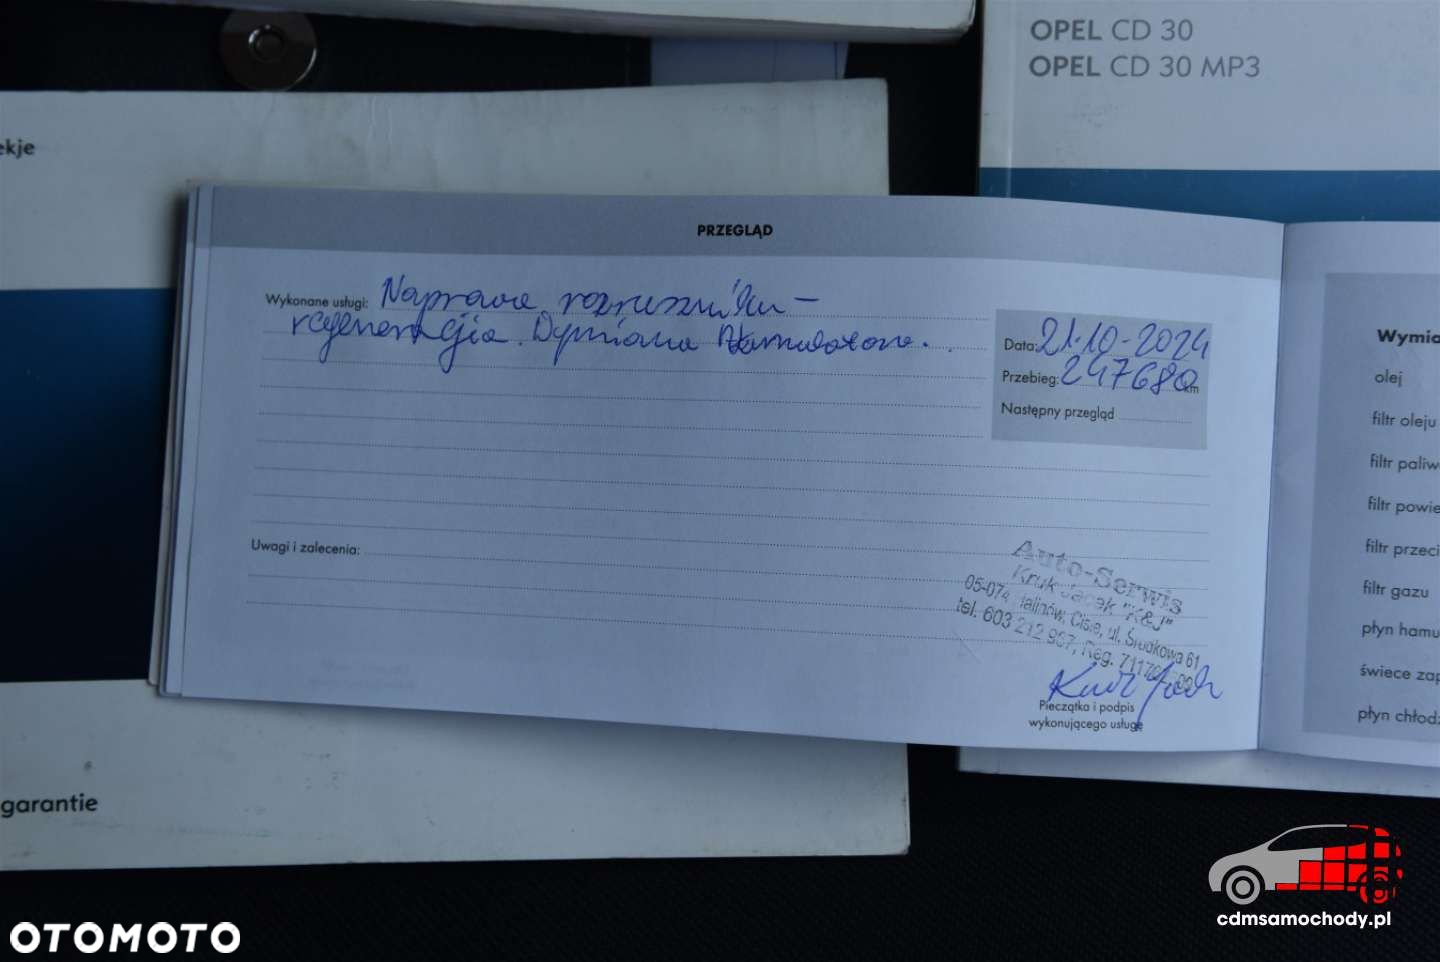 OPEL CD 30
OPEL CD 30 MP3
ekje
PRZEGLĄD
Wykonane usługi: Naprawa rozrusznika –
regeneracja. Wymiana Akumulatora.
Data: 21.10-2024
Przebieg: 247680 km
Następny przegląd
Uwagi i zalecenia:
Auto-Serwis
Kruk Jacek "K&J"
05-074 Halinów, Cisie, ul. Środkowa 61
tel. 603 212 987, Reg.
Pieczątka i podpis
wykonującego usługę
Wymia
olej
filtr oleju
filtr paliw
filtr powie
filtr przeci
filtr gazu
płyn hamu
świece zap
płyn chłod
garantie
OTOMOTO
cdmsamochody.pl